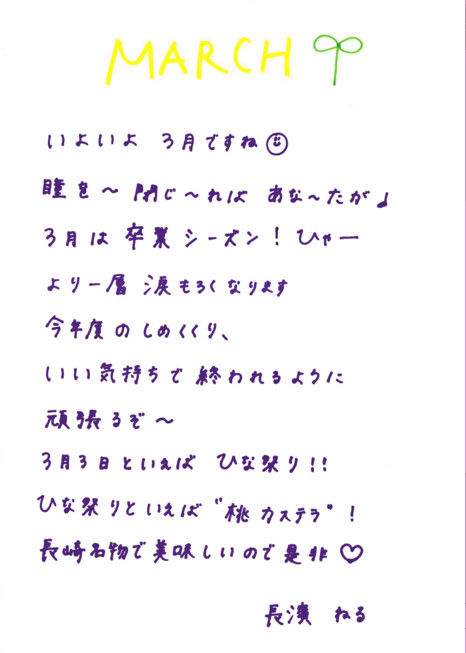 MARCH
いよいよ 3月ですね
瞳を〜閉じ〜れば あな〜たが♩
3月は 卒業シーズン! ひゃー
より一層 涙もろくなります
今年度のしめくくり、
いい気持ちで終われるように
頑張るぞ〜
3月3日といえば ひな祭り!!
ひな祭りといえば"桃カステラ"!
長崎名物で美味しいので是非♡
長濱 ねる